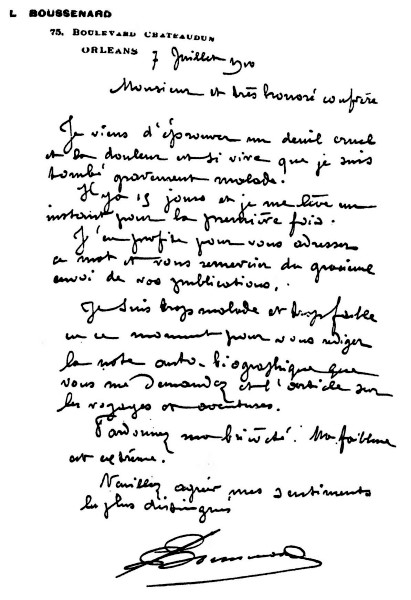 L BOUSSENARD
75, BOULEVARD CHATEAUDUN
ORLEANS 7 Juillet 1910
Monsieur et très honoré confrère
Je viens d'éprouver un deuil cruel
et la douleur est si vive que je suis
tombé gravement malade.
Il y a 15 jours et je me lève un
instant pour la première fois.
J'en profite pour vous adresser
ce mot et vous remercier du gracieux
envoi de vos publications.
Je suis trop malade et trop faible
en ce moment pour vous rédiger
la note auto-biographique que
vous me demandez et l'article sur
les voyages et aventures.
Pardonnez ma brièveté. Ma faiblesse
est extrême.
Veuillez agréer mes sentiments
les plus distingués
L Boussenard